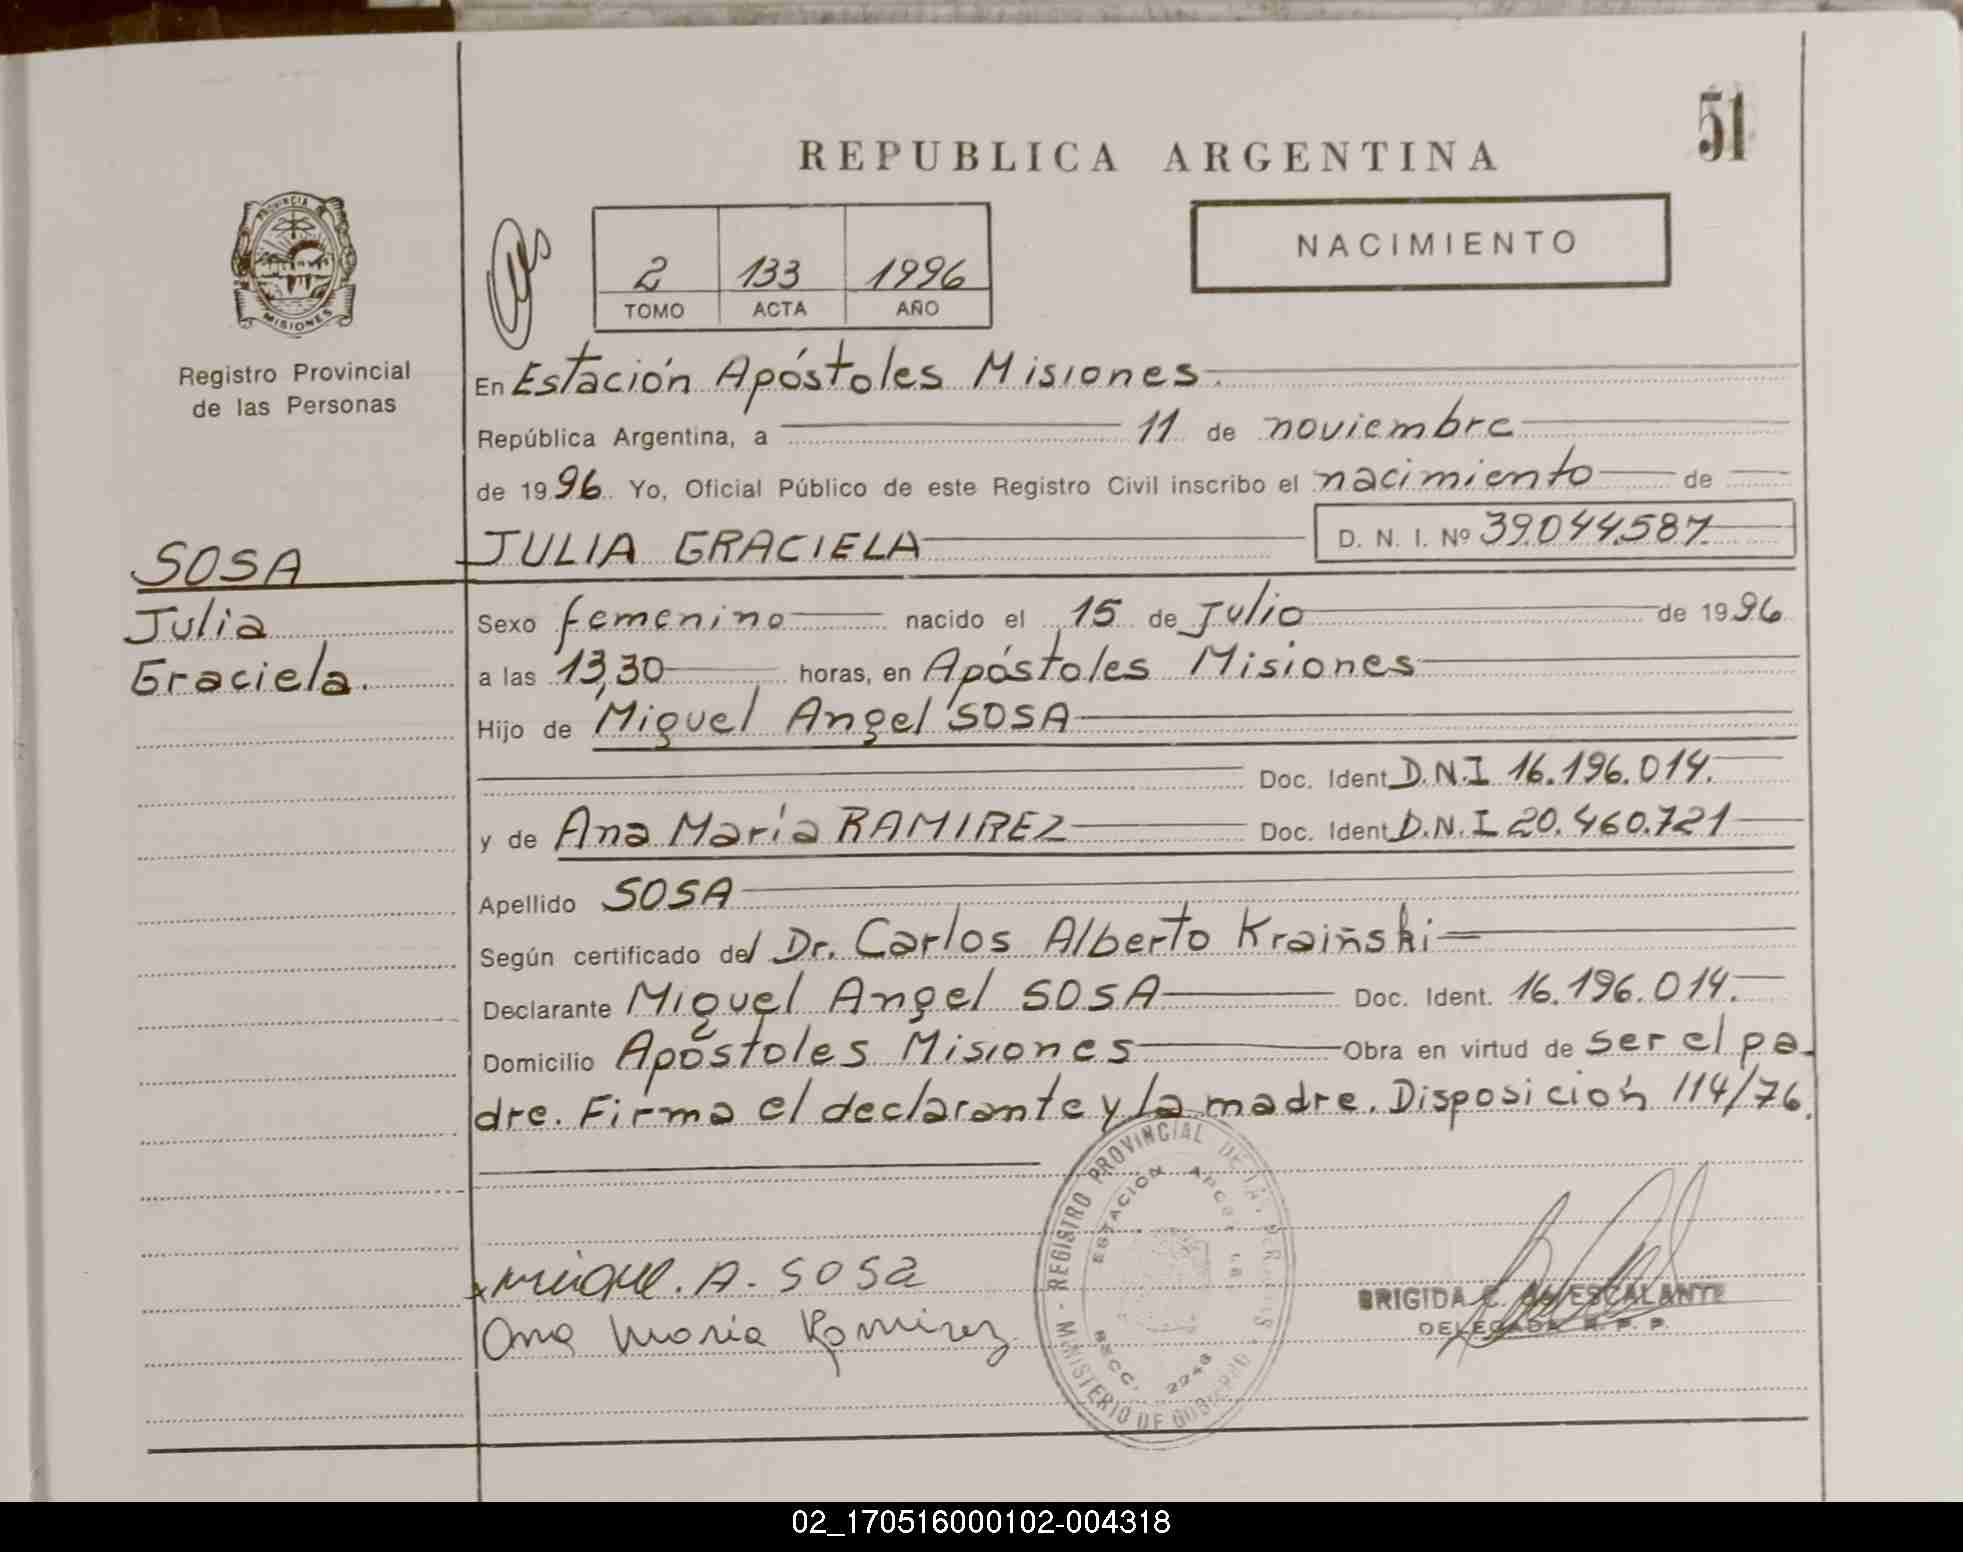 51
REPUBLICA ARGENTINA
PROVINCIA
MISIONES
Registro Provincial
de las Personas
NACIMIENTO
2 133 1996
TOMO ACTA AÑO
En Estación Apóstoles Misiones.
República Argentina, a 11 de noviembre
de 1996. Yo, Oficial Público de este Registro Civil inscribo el nacimiento de
JULIA GRACIELA D. N. I. Nº 39.044.587
SOSA
Julia
Graciela.
Sexo femenino nacido el 15 de Julio de 1996
a las 13,30 horas, en Apóstoles Misiones
Hijo de Miguel Angel SOSA
Doc. Ident D.N.I 16.196.014.
y de Ana María RAMIREZ Doc. Ident D.N.I 20.460.721
Apellido SOSA
Según certificado del Dr. Carlos Alberto Kraiñski
Declarante Miguel Angel SOSA Doc. Ident. 16.196.014.
Domicilio Apóstoles Misiones Obra en virtud de ser el pa-
dre. Firma el declarante y la madre. Disposición 114/76.
REGISTRO PROVINCIAL DE LAS PERSONAS - MINISTERIO DE GOBIERNO -
ESTACIÓN APOSTOLES
SECC. 2946
Miguel. A. SOSa
Ana Maria Ramirez
BRIGIDA C. de ESCALANTE
DELEGADA R. P. P.
02_170516000102-004318